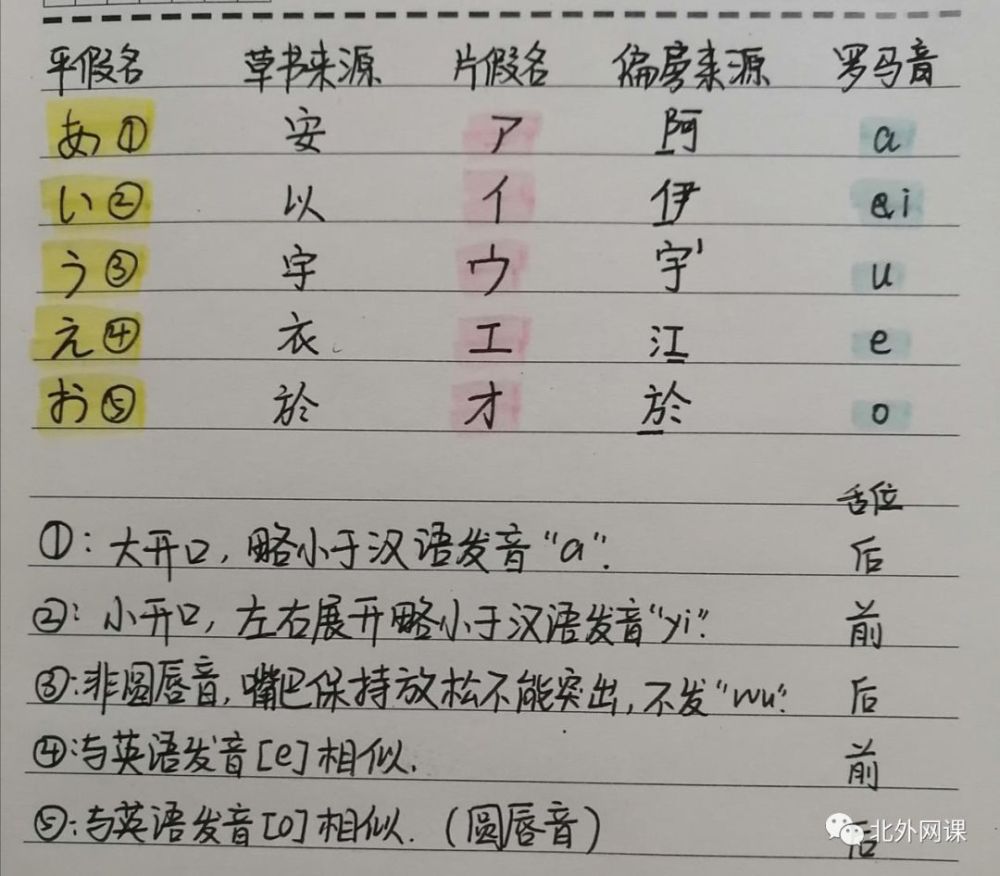 平假名 草书来源 片假名 偏旁来源 罗马音
あ① 安 ア 阿 a
い② 以 イ 伊 i
う③ 宇 ウ 宇 u
え④ 衣 エ 江 e
お⑤ 於 オ 於 o
舌位
①：大开口，略小于汉语发音“a”. 后
②：小开口，左右展开略小于汉语发音“yi”. 前
③：非圆唇音，嘴巴保持放松不能突出，不发“wu”. 后
④：与英语发音[e]相似. 前
⑤：与英语发音[o]相似.（圆唇音） 后
北外网课